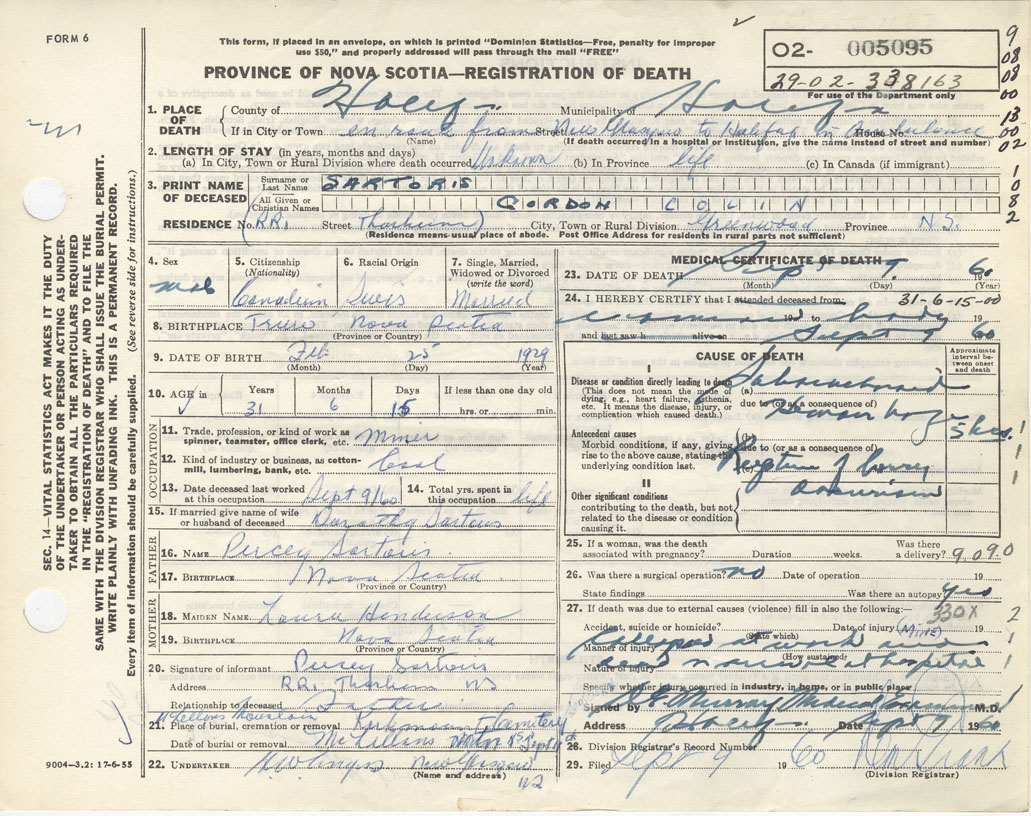 FORM 6
This form, if placed in an envelope, on which is printed "Dominion Statistics—Free, penalty for improper
use $50," and properly addressed will pass through the mail "FREE"
PROVINCE OF NOVA SCOTIA—REGISTRATION OF DEATH
02- 005095
29-02-338163
For use of the Department only
9
08
08
00
13
00
02
1. PLACE OF DEATH
County of
Municipality of
If in City or Town en route from Street to Halifax in Ambulance House No.
(Name) (If death occurred in a hospital or institution, give the name instead of street and number)
2. LENGTH OF STAY (in years, months and days)
(a) In City, Town or Rural Division where death occurred Unknown (b) In Province life (c) In Canada (if immigrant)
3. PRINT NAME OF DECEASED
Surname or Last Name SARTORIS
All Given or Christian Names GORDON COLIN
RESIDENCE No. RR1 Street Thorburn City, Town or Rural Division Greenwood Province N.S.
(Residence means usual place of abode. Post Office Address for residents in rural parts not sufficient)
1
0
8
2
4. Sex
male
5. Citizenship (Nationality)
Canadian
6. Racial Origin
Swiss
7. Single, Married, Widowed or Divorced (write the word)
Married
8. BIRTHPLACE Truro Nova Scotia
(Province or Country)
9. DATE OF BIRTH Feb 25 1929
(Month) (Day) (Year)
10. AGE in Years Months Days If less than one day old
31 6 15 hrs. or min.
OCCUPATION
11. Trade, profession, or kind of work as spinner, teamster, office clerk, etc. Miner
12. Kind of industry or business, as cotton-mill, lumbering, bank, etc. Coal
13. Date deceased last worked at this occupation Sept 9/60
14. Total yrs. spent in this occupation life
15. If married give name of wife or husband of deceased Dorothy Sartoris
FATHER
16. NAME Percey Sartoris
17. BIRTHPLACE Nova Scotia
(Province or Country)
MOTHER
18. MAIDEN NAME Laura Henderson
19. BIRTHPLACE Nova Scotia
(Province or Country)
20. Signature of informant Percey Sartoris
Address RR1 Thorburn NS
Relationship to deceased Father
McLellans Mountain
21. Place of burial, cremation or removal Cemetery
Date of burial or removal McLellans Sept
22. UNDERTAKER New Glasgow
(Name and address) NS
MEDICAL CERTIFICATE OF DEATH
23. DATE OF DEATH Sept 9 60
(Month) (Day) (Year)
24. I HEREBY CERTIFY that I attended deceased from 31-6-15-00
examined 19 to body 19
and last saw h alive on Sept 9 60
CAUSE OF DEATH
Approximate interval between onset and death
I
Disease or condition directly leading to death
(This does not mean the mode of dying, e.g., heart failure, asthenia, etc. It means the disease, injury, or complication which caused death.)
(a) Subarachnoid
due to (or as a consequence of)
5 hrs.
Antecedent causes
Morbid conditions, if any, giving rise to the above cause, stating the underlying condition last.
(b) Rupture of
due to (or as a consequence of)
(c)
II
Other significant conditions
contributing to the death, but not related to the disease or condition causing it.
1
1
1
25. If a woman, was the death associated with pregnancy? Duration weeks. Was there a delivery?
9.09.0
26. Was there a surgical operation? no Date of operation 19
State findings Was there an autopsy? yes
27. If death was due to external causes (violence) fill in also the following:—
330X
Accident, suicide or homicide? Date of injury (MINE) 19
(State which)
2
Manner of injury Collapsed at work
(How sustained)
1
Nature of injury
1
Specify whether injury occurred in industry, in home, or in public place
Signed by Murray Medical Examiner M.D.
Address Date Sept 9 1960
28. Division Registrar's Record Number
29. Filed Sept 9 1960
(Division Registrar)
SEC. 14—VITAL STATISTICS ACT MAKES IT THE DUTY
OF THE UNDERTAKER OR PERSON ACTING AS UNDER-
TAKER TO OBTAIN ALL THE PARTICULARS REQUIRED
IN THE "REGISTRATION OF DEATH" AND TO FILE THE
SAME WITH THE DIVISION REGISTRAR WHO SHALL ISSUE THE BURIAL PERMIT.
WRITE PLAINLY WITH UNFADING INK. THIS IS A PERMANENT RECORD.
Every item of information should be carefully supplied. (See reverse side for instructions.)
9004—3.2: 17-6-55